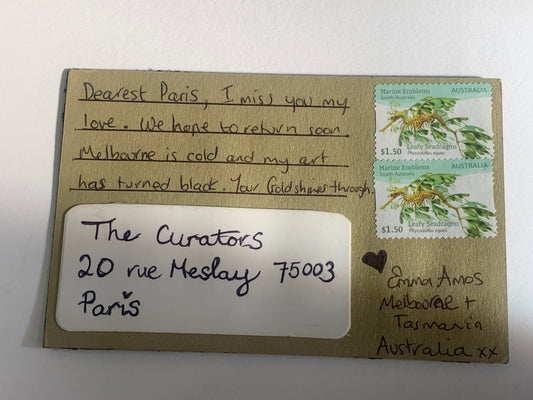 Dearest Paris, I miss you my
love. We hope to return soon.
Melbourne is cold and my art
has turned black. Your Gold shines through.
The Curators
20 rue Meslay 75003
Paris
Marine Emblems
South Australia
AUSTRALIA
Leafy Seadragon
Phycodurus eques
$1.50
Marine Emblems
South Australia
AUSTRALIA
Leafy Seadragon
Phycodurus eques
$1.50
Emma Amos
Melbourne +
Tasmania
Australia xx